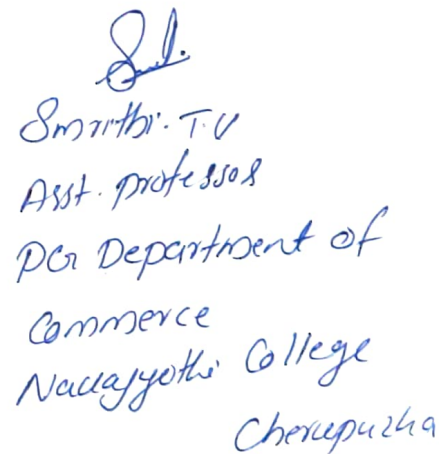 Smrithi. T.V
Asst. professor
PG Department of
Commerce
Navajyothi College
Cherupuzha